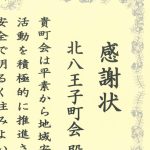 感謝状
北八王子町会 殿
貴町会は平素から地域安
活動を積極的に推進さ
安全で明るく住みよい